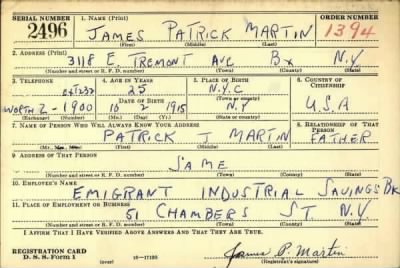 SERIAL NUMBER 1. NAME (Print) ORDER NUMBER
2496 JAMES PATRICK MARTIN 1394
(First) (Middle) (Last)
2. ADDRESS (Print)
3118 E. TREMONT AVE BX N.Y.
(Number and street or R. F. D. number) (Town) (County) (State)
3. TELEPHONE 4. AGE IN YEARS 5. PLACE OF BIRTH 6. COUNTRY OF CITIZENSHIP
25 N.Y.C
WORTH 2-1900 10 2 1915 N.Y U.S.A
(Exchange) (Number) (Mo.) (Day) (Yr.) (State or country)
7. NAME OF PERSON WHO WILL ALWAYS KNOW YOUR ADDRESS 8. RELATIONSHIP OF THAT PERSON
PATRICK J MARTIN FATHER
(Mr., Mrs., Miss) (First) (Middle) (Last)
9. ADDRESS OF THAT PERSON
SAME
(Number and street or R. F. D. number) (Town) (County) (State)
10. EMPLOYER'S NAME
EMIGRANT INDUSTRIAL SAVINGS BK
11. PLACE OF EMPLOYMENT OR BUSINESS
51 CHAMBERS ST. N.Y
(Number and street or R. F. D. number) (Town) (County) (State)
I AFFIRM THAT I HAVE VERIFIED ABOVE ANSWERS AND THAT THEY ARE TRUE.
REGISTRATION CARD
D. S. S. Form 1 (over) 16-17105 James P. Martin
(Registrant's signature)